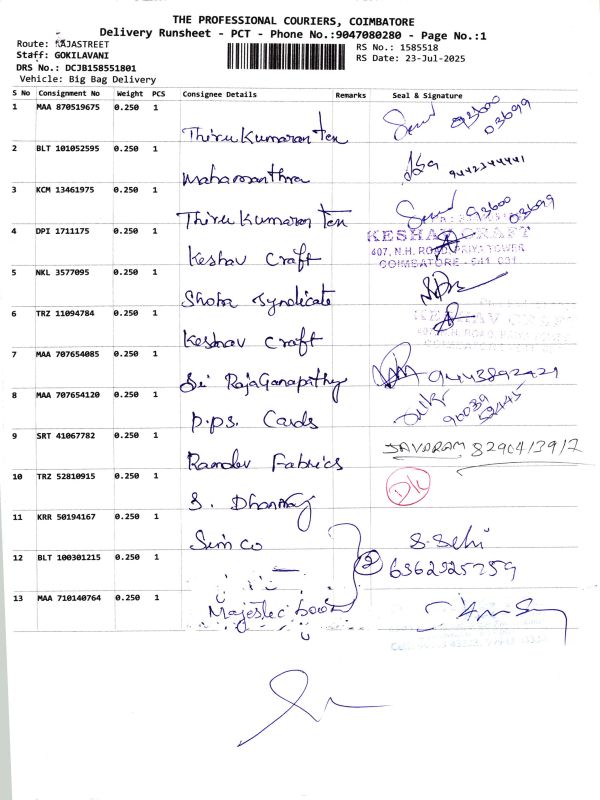 THE PROFESSIONAL COURIERS, COIMBATORE
Delivery Runsheet - PCT - Phone No.:9047080280 - Page No.:1
Route: RAJASTREET
RS No.: 1585518
Staff: GOKILAVANI
RS Date: 23-Jul-2025
DRS No.: DCJB158551801
Vehicle: Big Bag Delivery
S No Consignment No Weight PCS Consignee Details Remarks Seal & Signature
1 MAA 870519675 0.250 1 Thirukumaran Tex 93600 03699
2 BLT 101052595 0.250 1 Mahamanthra 9442344441
3 KCM 13461975 0.250 1 Thirukumaran Tex 93600 03699
4 DPI 1711175 0.250 1 Keshav Craft
KESHAV CRAFT
407, N.H. ROAD, PRIYA TOWER
COIMBATORE - 641 031
5 NKL 3577095 0.250 1 Shoba Syndicate
6 TRZ 11094784 0.250 1 Keshav Craft
KESHAV CRAFT
7 MAA 707654085 0.250 1 Sri RajaGanapathy 9443892421
8 MAA 707654120 0.250 1 P.P.S. Cards 90039 52445
9 SRT 41067782 0.250 1 Ramdev Fabrics
10 TRZ 52810915 0.250 1 S.
11 KRR 50194167 0.250 1 Simco
12 BLT 100301215 0.250 1 2
13 MAA 710140764 0.250 1 Majestic